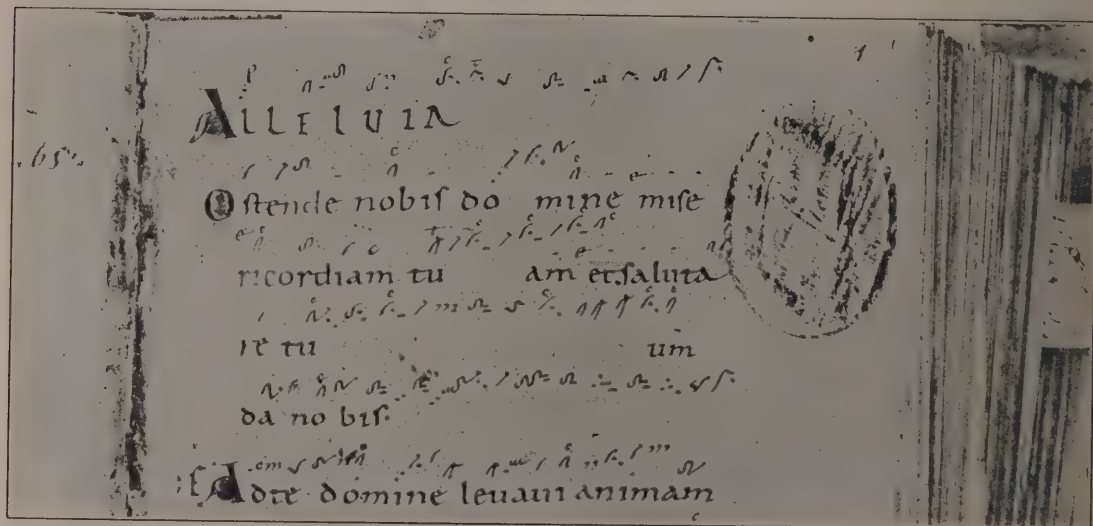 ALLELUIA
Ostende nobis do mine mise
ricordiam tu am et saluta
re tu um
da no bis.
Adte domine leuaui animam